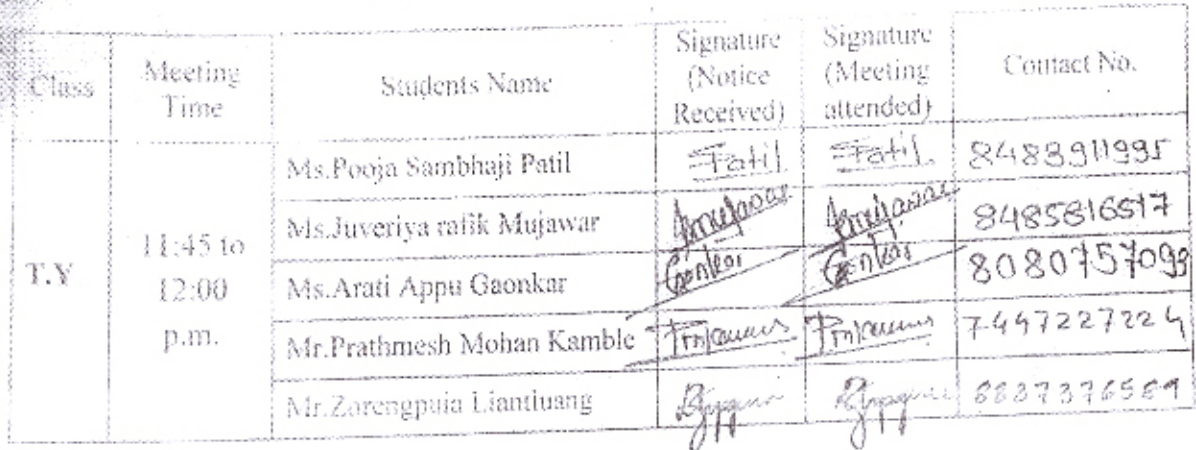 Class Meeting Time Students Name Signature (Notice Received) Signature (Meeting attended) Contact No.
T.Y 11:45 to 12:00 p.m.
Ms.Pooja Sambhaji Patil Patil Patil 8483911995
Ms.Juveriya rafik Mujawar Mujawar Mujawar 8485816517
Ms.Arati Appu Gaonkar 8080757099
Mr.Prathmesh Mohan Kamble 7447227224
Mr.Zorengpuia Liantluang